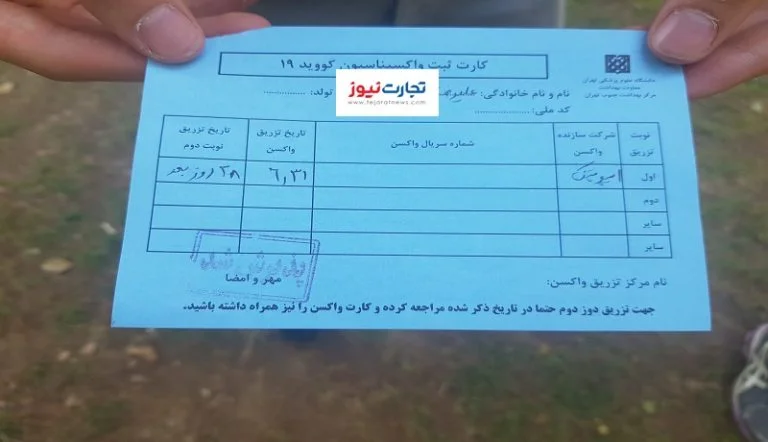 کارت ثبت واکسیناسیون کووید ۱۹
دانشگاه علوم پزشکی تهران
معاونت بهداشت
مرکز بهداشت جنوب تهران
نام و نام خانوادگی: تولد: ..............
تجارت‌نیوز
www.tejaratnews.com
کد ملی: ...................
نوبت تزریق شرکت سازنده واکسن شماره سریال واکسن تاریخ تزریق واکسن تاریخ تزریق نوبت دوم
اول ۶,۳۱ ۲۸ روز بعد
دوم
سایر
سایر
نام مرکز تزریق واکسن:
مهر و امضا
جهت تزریق دوز دوم حتما در تاریخ ذکر شده مراجعه کرده و کارت واکسن را نیز همراه داشته باشید.